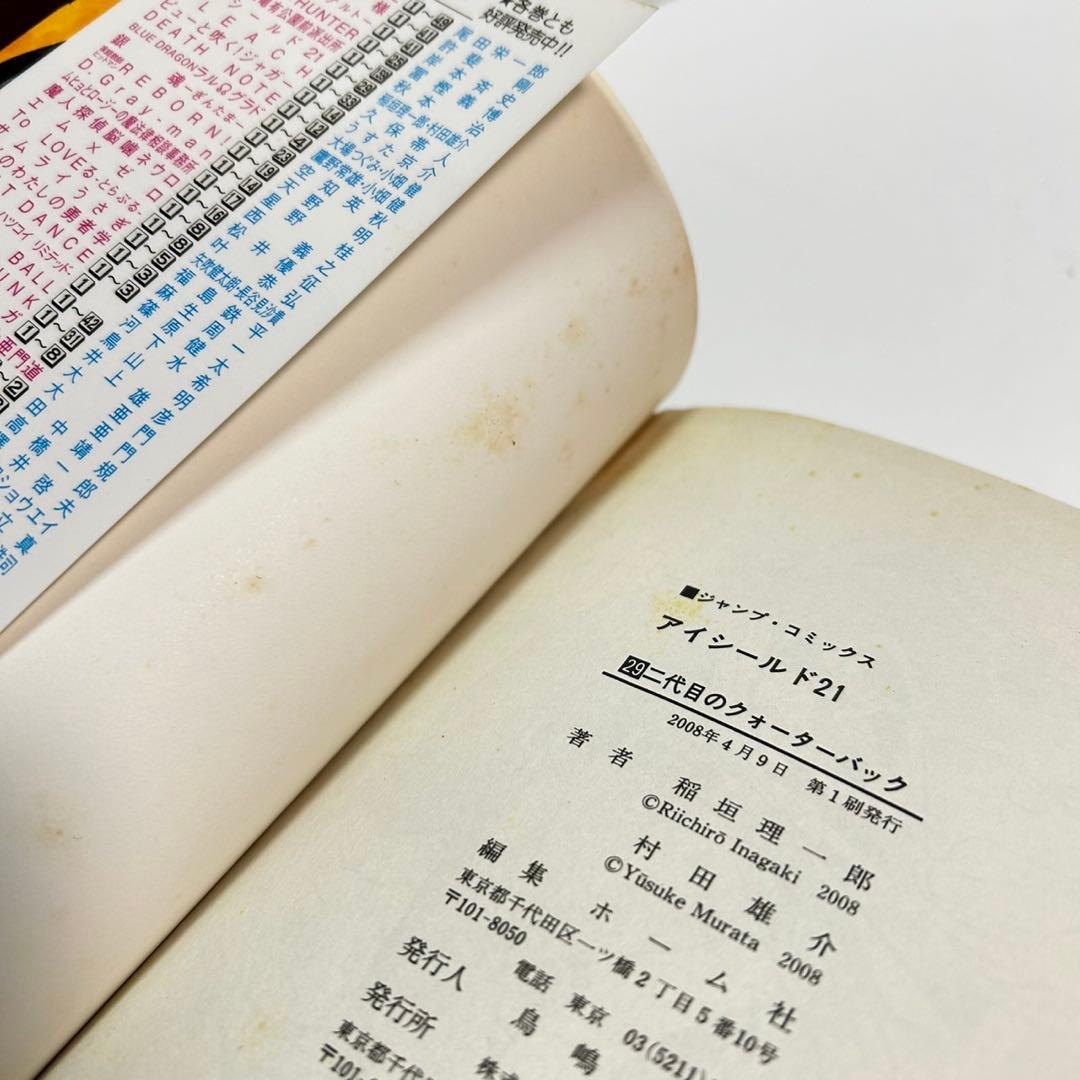 ■ジャンプ・コミックス
アイシールド21
29二代目のクォーターバック
2008年4月9日 第1刷発行
著者 稲垣理一郎
©Riichirō Inagaki 2008
村田雄介
©Yūsuke Murata 2008
編集 ホーム社
東京都千代田区一ツ橋2丁目5番10号
〒101-8050
電話 東京 03(5211)
発行人 鳥嶋
発行所 株式
東京都千代田区一ツ橋
〒101-8050
各巻とも
好評発売中!!
HUNTER
シールド21
ピューと吹く!ジャガー
DEATH NOTE
BLUE DRAGONラルΩグラド
銀魂―ぎんたま―
家庭教師ヒットマンREBORN!
D.Gray-man
ムヒョとロージーの魔法律相談事務所
魔人探偵脳噛ネウロ
エム×ゼロ
To LOVEる―とらぶる
サムライうさぎ
のわたしの勇者学
T DANCE
ハツコイ リミテッド
BALL
UNK
亜門道
尾田栄一郎
許斐剛
岸本斉史
冨樫義博
秋本治
稲垣理一郎・村田雄介
久保帯人
うすた京介
大場つぐみ・小畑健
鷹野常雄・小畑健
空知英秋
天野明
星野桂
西義之
松井優征
叶恭弘
矢吹健太朗・長谷見沙貴
福島鉄平
麻生周一
篠原健太
河下水希
鳥山明
井上雄彦
大亜門
大亜門
田中靖規
高橋一郎